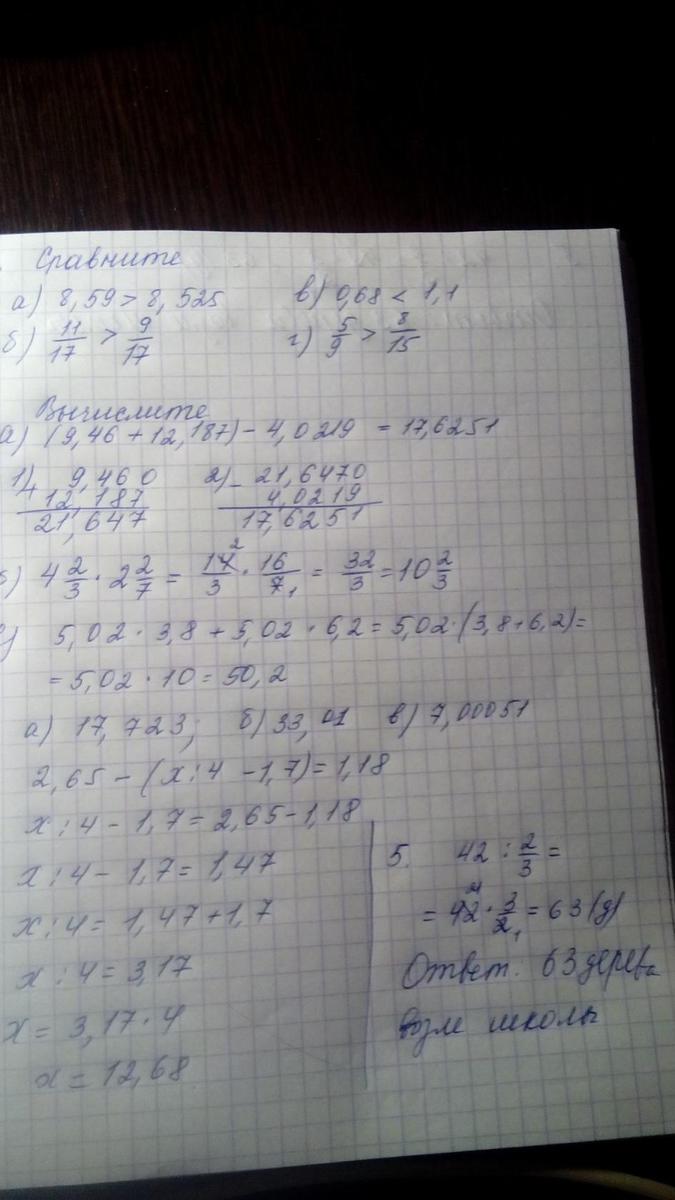 Сравните
а) 8,59 > 8,525 в) 0,68 < 1,1
б) 11/17 > 9/17 г) 5/9 > 8/15
Вычислите
а) (9,46 + 12,187) - 4,0219 = 17,6251
1) + 9,460 2) - 21,6470
12,187 4,0219
21,647 17,6251
б) 4 2/3 · 2 2/7 = 14 2/3 · 16/7 1 = 32/3 = 10 2/3
в) 5,02 · 3,8 + 5,02 · 6,2 = 5,02 · (3,8 + 6,2) =
= 5,02 · 10 = 50,2
а) 17,723; б) 33,01 в) 7,00051
2,65 - (x : 4 - 1,7) = 1,18
x : 4 - 1,7 = 2,65 - 1,18
x : 4 - 1,7 = 1,47
x : 4 = 1,47 + 1,7
x : 4 = 3,17
x = 3,17 · 4
x = 12,68
5. 42 : 2/3 =
= 42 · 3/2 1 = 63 (д)
Ответ. 63 дерева
возле школы